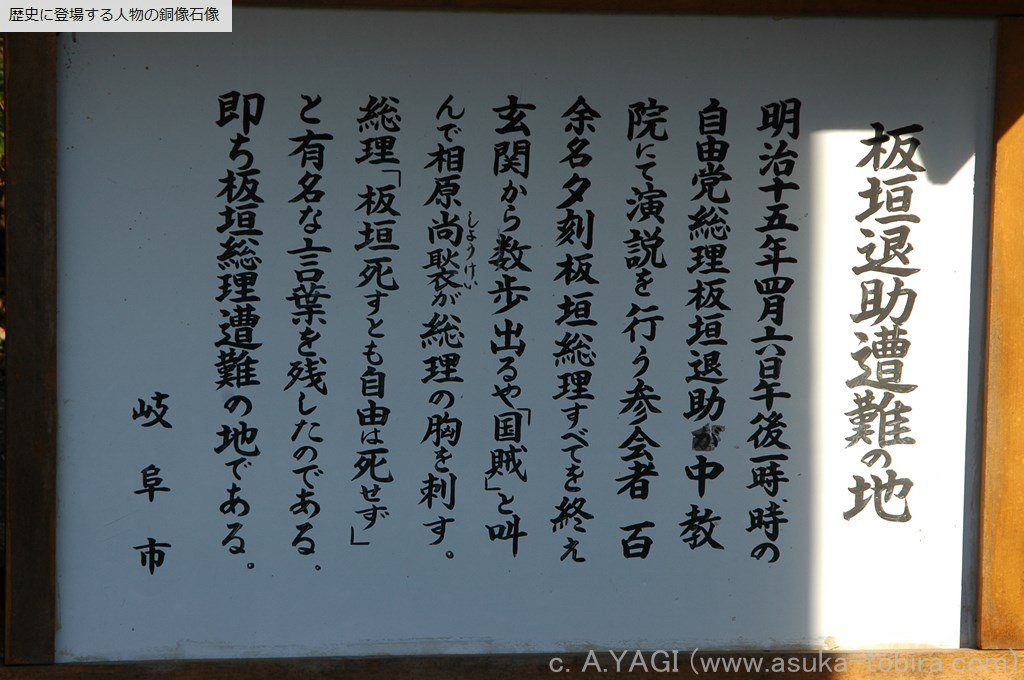 歴史に登場する人物の銅像石像
板垣退助遭難の地
明治十五年四月六日午後一時、時の
自由党総理板垣退助が中教
院にて演説を行う参会者 百
余名夕刻板垣総理すべてを終え
玄関から数歩出るや「国賊」と叫
んで相原尚褧が総理の胸を刺す。
しょうけい
総理「板垣死すとも自由は死せず」
と有名な言葉を残したのである。
即ち板垣総理遭難の地である。
岐阜市
c. A.YAGI (www.asuka-tobira.com)